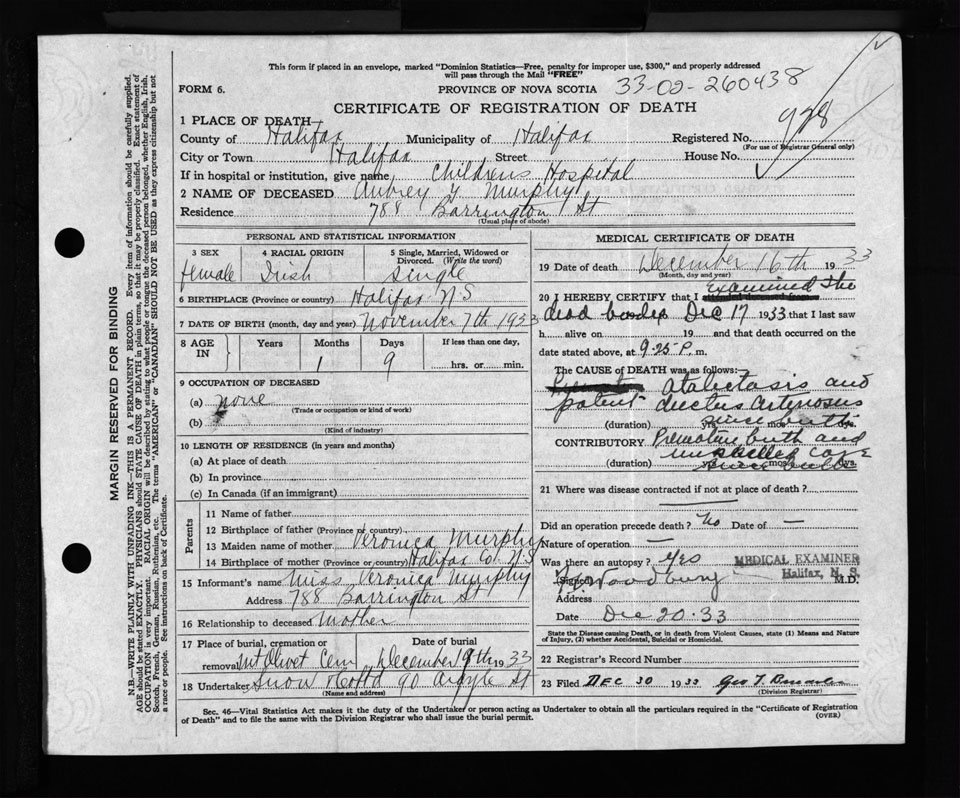 This form if placed in an envelope, marked "Dominion Statistics—Free, penalty for improper use, $300," and properly addressed
will pass through the Mail "FREE"
FORM 6. PROVINCE OF NOVA SCOTIA 33-02-260438
CERTIFICATE OF REGISTRATION OF DEATH
928
1 PLACE OF DEATH
County of Halifax Municipality of Halifax Registered No.
(For use of Registrar General only)
City or Town Halifax Street House No.
If in hospital or institution, give name, Childrens Hospital
2 NAME OF DECEASED Aubrey Y Murphy
Residence 788 Barrington St
(Usual place of abode)
PERSONAL AND STATISTICAL INFORMATION
3 SEX 4 RACIAL ORIGIN 5 Single, Married, Widowed or
Divorced. (Write the word)
female Irish single
6 BIRTHPLACE (Province or country) Halifax N S
7 DATE OF BIRTH (month, day and year) November 7th 1933
8 AGE IN Years Months Days If less than one day,
1 9 hrs. or min.
9 OCCUPATION OF DECEASED
(a) none
(Trade or occupation or kind of work)
(b)
(Kind of industry)
10 LENGTH OF RESIDENCE (in years and months)
(a) At place of death
(b) In province
(c) In Canada (if an immigrant)
Parents
11 Name of father
12 Birthplace of father (Province or country)
13 Maiden name of mother Veronica Murphy
14 Birthplace of mother (Province or country) Halifax Co. N.S
15 Informant's name Miss Veronica Murphy
Address 788 Barrington St
16 Relationship to deceased mother
17 Place of burial, cremation or Date of burial
removal Mt Olivet Cem December 19th 1933
18 Undertaker Snow & Co Ltd 90 Argyle St
(Name and address)
MEDICAL CERTIFICATE OF DEATH
19 Date of death December 16th 1933
(Month, day and year)
20 I HEREBY CERTIFY that I attended deceased from examined the
dead bodies Dec 17 1933 that I last saw
h alive on 19 and that death occurred on
date stated above, at 9.25 P. m.
The CAUSE OF DEATH was as follows:
atalectasis and
patent ductus arteriosus
(duration) yrs. mos. ds. since birth
CONTRIBUTORY Premature birth and
unskilled care
(duration) yrs. mos. dys. since birth
21 Where was disease contracted if not at place of death?
Did an operation precede death? No Date of —
Nature of operation —
Was there an autopsy? Yes MEDICAL EXAMINER
(Signed) Woodbury Halifax, N. S.
M.D.
Address
Date Dec 20.33
State the Disease causing Death, or in death from Violent Causes, state (1) Means and Nature
of Injury, (2) whether Accidental, Suicidal or Homicidal.
22 Registrar's Record Number
23 Filed DEC 30 1933 Geo T.
(Division Registrar)
Sec. 46—Vital Statistics Act makes it the duty of the Undertaker or person acting as Undertaker to obtain all the particulars required in the "Certificate of Registration
of Death" and to file the same with the Division Registrar who shall issue the burial permit. (OVER)
MARGIN RESERVED FOR BINDING
N.B.—WRITE PLAINLY WITH UNFADING INK—THIS IS A PERMANENT RECORD. Every item of information should be carefully supplied.
AGE should be stated EXACTLY. PHYSICIANS should STATE CAUSE OF DEATH in plain terms, so that it may be properly classified. Exact statement of
OCCUPATION is very important. RACIAL ORIGIN will be described by stating to what people or tongue the deceased person belonged, whether English, Irish,
Scotch, French, German, Russian, Ruthenian, etc. The terms "AMERICAN" or "CANADIAN" SHOULD NOT BE USED as they express citizenship but not
a race or people. See instructions on back of Certificate.